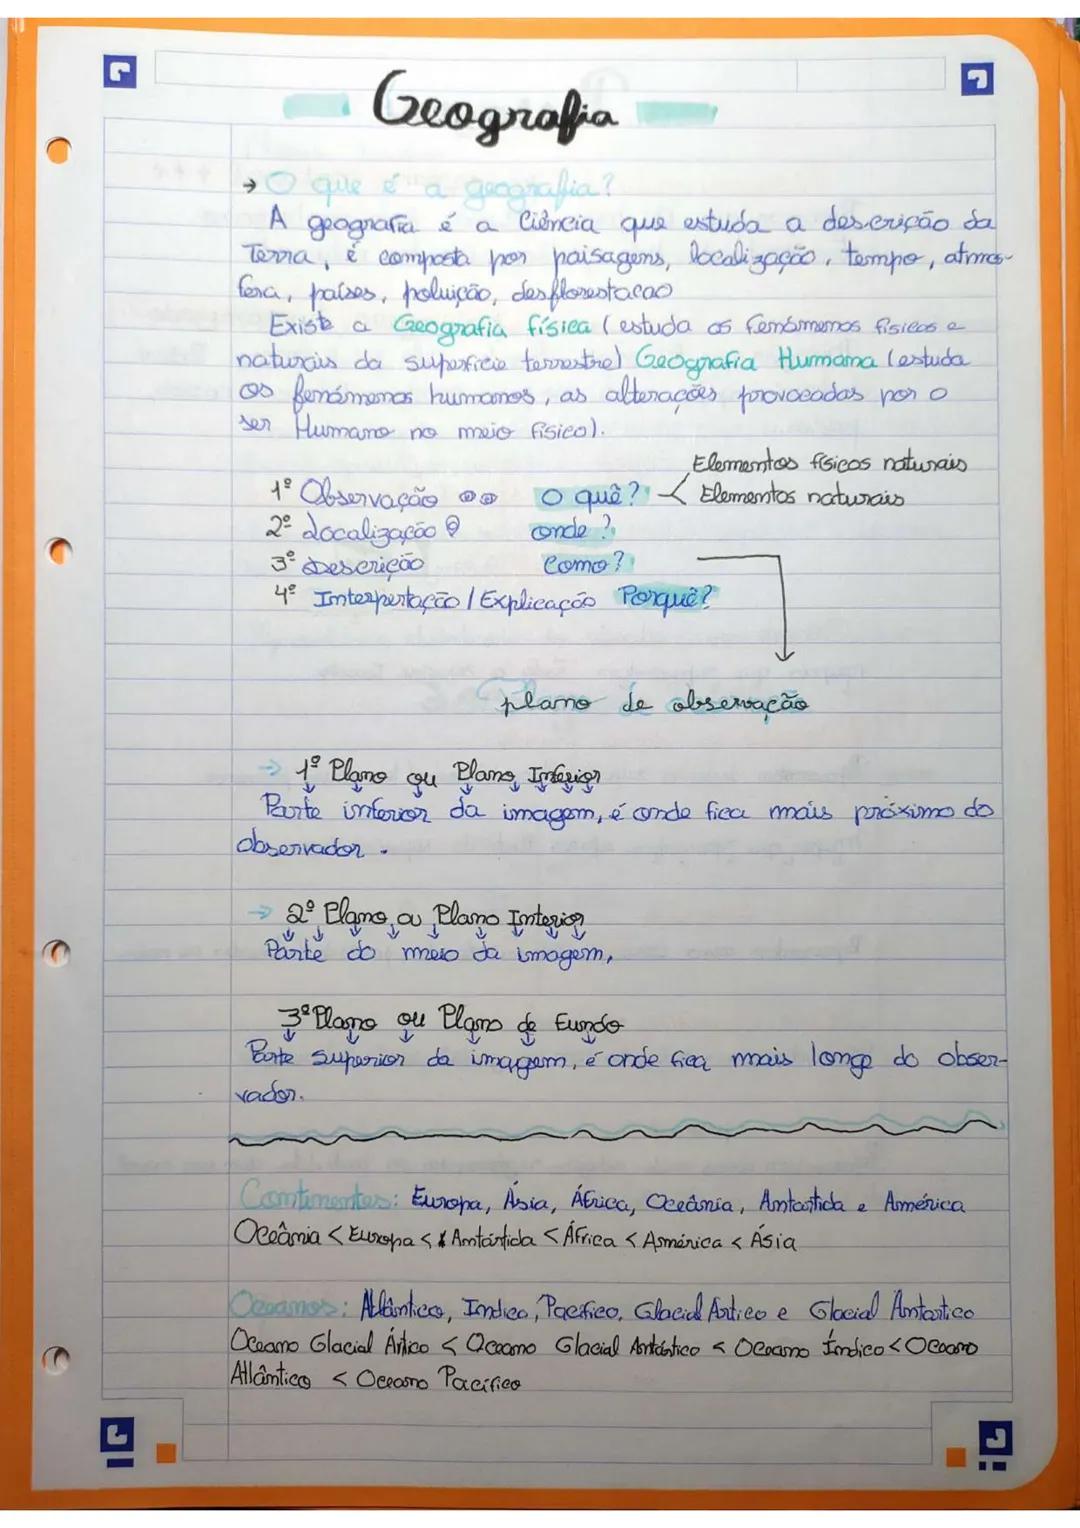 Geografia
→ O que é a geografia?
A geografia é a Ciência que estuda a descrição da
Terra, é composta por paisagens, localização, tempo, atmos-
fera, países, poluição, desflorestacao
Existe a Geografia física (estuda os fenómenos físicos e
naturais da superfície terrestre) Geografia Humana (estuda
os fenómenos humanos, as alterações provocadas por o
ser Humano no meio físico).
Elementos físicos naturais
1º Observação O quê? Elementos naturais
2º Localização onde?
3º Descrição Como?
4º Interpertação / Explicação Porquê?
plano de observação
→ 1º Plano ou Plano Inferior
Parte inferior da imagem, é onde fica mais próximo do
observador.
→ 2º Plano ou Plano Interior
Parte do meio da imagem,
3º Plano ou Plano de Fundo
Parte superior da imagem, é onde fica mais longe do obser-
vador.
Continentes: Europa, Ásia, África, Oceânia, Antartida e América
Oceânia < Europa < Antártida < África < América < Ásia
Oceanos: Atlântico, Indico, Pacifico, Glacial Artico e Glacial Antartico
Oceano Glacial Ártico < Oceano Glacial Antártico < Oceano Índico < Oceano
Atlântico < Oceano Pacífico